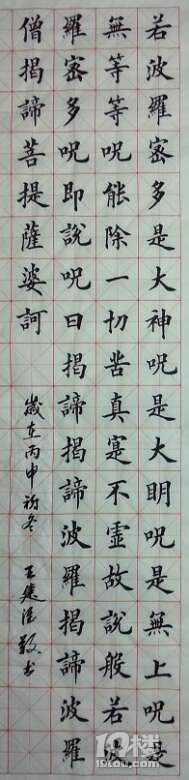 若波羅密多是大神呪是大眀呪是無上呪是
無等等呪能除一切苦真寔不虛故說般若波
羅密多呪即說呪曰揭諦揭諦波羅揭諦波羅
僧揭諦菩提薩婆訶
歲在丙申初冬 王建 敬书
19楼
19lou.com